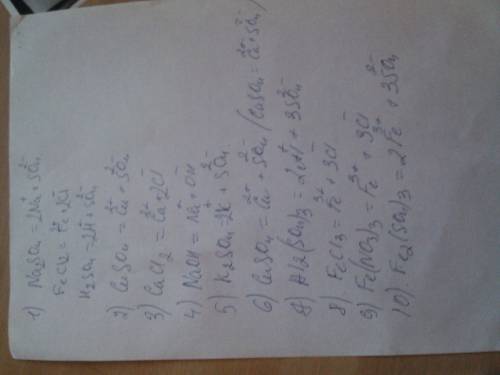 1) Na2SO4 = 2Na⁺ + SO4²⁻
FeCl2 = Fe²⁺ + 2Cl⁻
H2SO4 = 2H⁺ + SO4²⁻
2) CuSO4 = Cu²⁺ + SO4²⁻
3) CaCl2 = Ca²⁺ + 2Cl⁻
4) NaOH = Na⁺ + OH⁻
5) K2SO4 = 2K⁺ + SO4²⁻
6) CuSO4 = Cu²⁺ + SO4²⁻ (CuSO4 = Cu²⁺ + SO4²⁻)
7) Al2(SO4)3 = 2Al³⁺ + 3SO4²⁻
8) FeCl3 = Fe³⁺ + 3Cl⁻
9) Fe(NO3)3 = Fe³⁺ + 3Cl⁻
10) Fe2(SO4)3 = 2Fe³⁺ + 3SO4²⁻